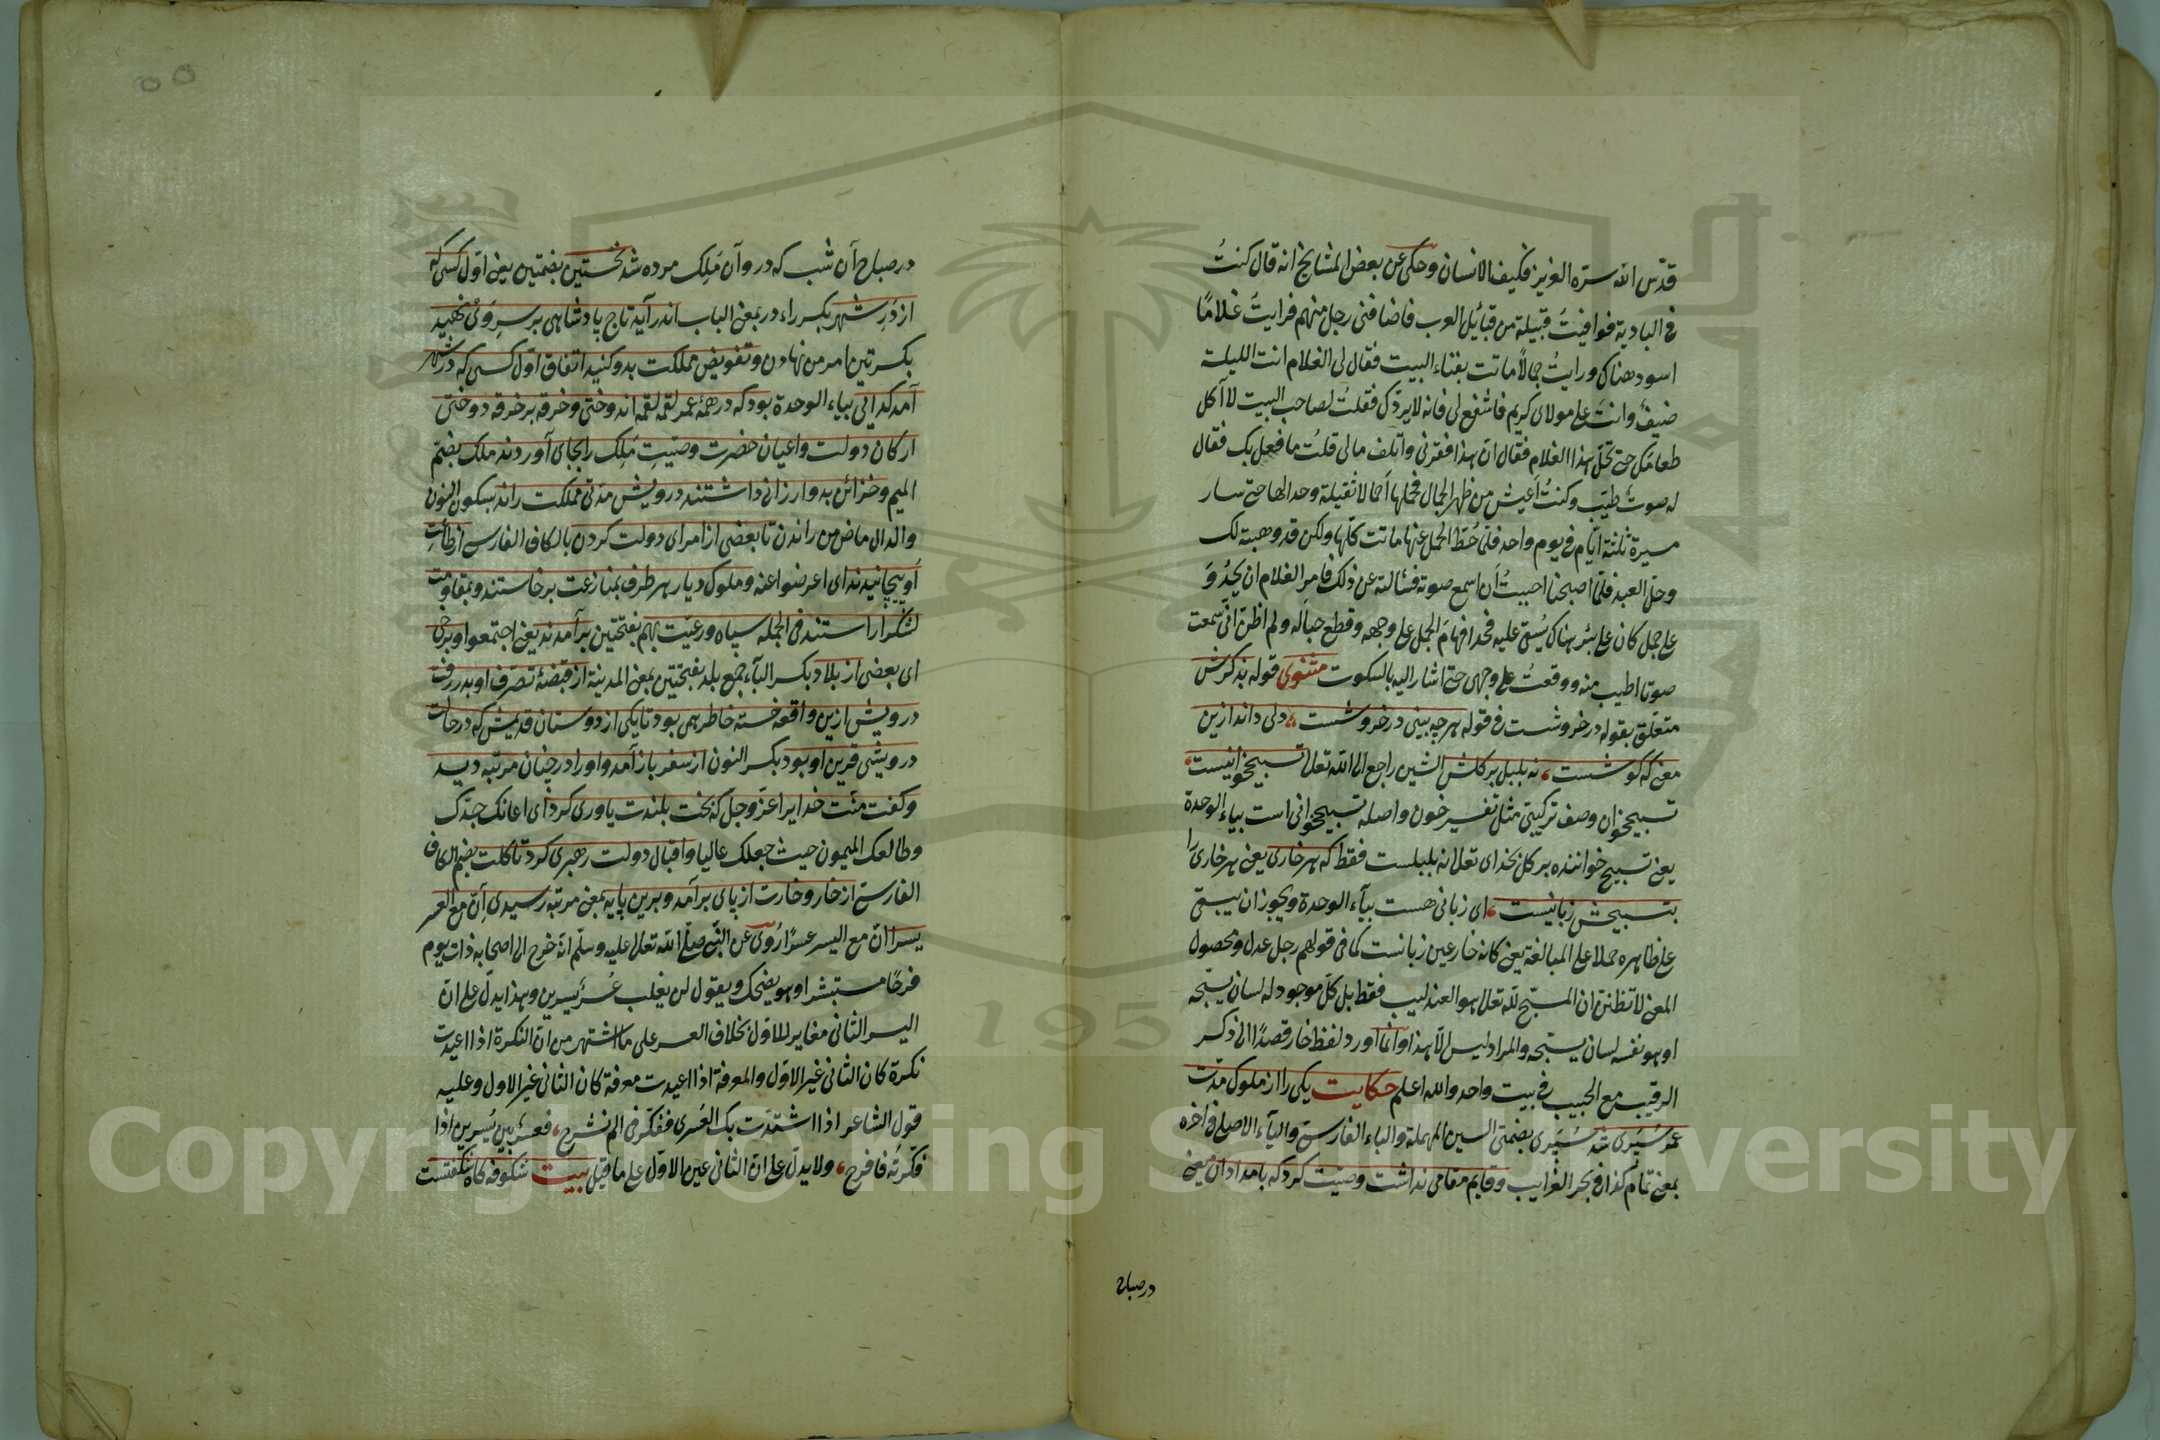 قدّس الله سرّه العزيز فكيف الانسان وحكى عن بعض المشايخ انه قال كنتُ
فى البادية فوافيتُ قبيلة من قبائل العرب فاضافنى رجل منهم فرايتُ غلامًا
اسود هناك ورايتُ جمالاً ماتت بفناء البيت فقال لى الغلام انت الليلة
ضيفٌ وانتَ على مولاى كريم فاشفع لى فانه لا يردّك فقلتُ لصاحب البيت لا آكل
طعامَك حتى تحلّ هذا الغلام فقال انّ هذا افقرنى واتلف مالى قلتُ ما فعل بك فقال
له صوتٌ طيّب وكنتُ اَعيش من ظهر الجمال فحملها اَحمالا ثقيلة وحدا لها حتى سار
مسيرة ثلثة ايّام فى يوم واحد فلمّا حُطّ الحمل عنها ماتت كلّها ولكن قد وهبته لك
وحلّ العبد فلمّا اصبحنا احببتُ اَن اسمع صوته فسالته عن ذلك فامر الغلام ان يحدُوَ
على جمل كان على بئر هناك يُستقى عليه فحدا فهامَ الجمل على وجهه وقطع حباله ولم اظنّ انّى سمعت
صوتا اطيب منه ووقعتُ على وجهى حتى اشار اليه بالسكوت مثنوى قوله بذكرش
متعلّق بقوله درخروشست فى قوله هرچه بينى درخروشست ؛ دلى داند ازين
معنى كه كوشست ؛ نه بلبل بر كلش الشين راجع الى الله تعالى تسبيحخوانيست ؛
تسبيحخوان وصف تركيبى مثل تفسيرخون واصله تسبيحخوانى است بياء الوحدة
يعنى تسبيح خواننده بر كل بخداى تعالى نه بلبلست فقط كه هر خارى يعنى هر خارى را
بتسبيحش زبانيست ؛ اى زبانى هست بياء الوحدة ويجوز ان يبقى
على ظاهره حملا على المبالغة يعنى كانه خار عين زبانست كما فى قولهم رجل عدل ومحصول
المعنى لا تظنّنّ ان المسبّح لله تعالى هو العندليب فقط بل كلّ موجود له لسان يسبّحه
او هو نفسه لسان يسبّحه والمراد ليس الّا هذا وانّما آورد لفظ خار قصدًا الى ذكر
الرقيب مع الحبيب فى بيت واحد والله اعلم حكايت يكى را از ملوك مدّت
عمر سپرى شد سپرى بضمتى السين المهملة والباء الفارسى والياء الاصلى فى اخره
بمعنى تمام كذا فى بحر الغرايب وقايم مقامى نداشت وصيّت كرد كه بامدادان يعنى
در صباح
در صباح آن شب كه در وآن مَلِك مرده شد نخستين بضمتين يعنى اوّل كسى كه
از دَرِ شهر بكسر راء در بمعنى الباب اندر آيد تاج پادشاهى بر سرِ وَى نهيد
بكسرتين امر من نهادن وتفويض مملكت بدو كنيد اتفاق اوّل كسى كه در شهر
آمد كدائى بياء الوحدة بود كه در همهٔ عمر لقمه لقمه اندوختى وخرقه بر خرقه دوختى
اركان دولت واعيان حضرت وصيّتِ مَلِك را بجاى آوردند ملك بضمّ
الميم وخزائن بدو ارزانى داشتند درويش مدّتى مملكت راند بسكون النون
والدال ماض من راندن تا بعضى از امراى دولت كردن بالكاف الفارسى از طاعتِ
اَو پيچانيدند اى اعرضوا عنه وملوك ديار هر طرف بمنازعت برخاستند وبمقاومت
لشكر آراستند فى الجمله سپاه ورعيّت بهم بفتحتين برآمدند يعنى اجتمعوا وبرخى
اى بعضى از بلاد بكسر الباء جمع بلد بفتحتين بمعنى المدينة از قبضهٔ تصرّف او بدر رفت
درويش ازين واقعه خسته خاطر همى بود تا يكى از دوستان قديمش كه در حالت
درويشى قرين او بود بكسر النون از سفر باز آمد واو را در چنان مرتبه ديد
وكفت منّت خدايرا عزّ وجلّ كه بخت بلندت ياورى كرد اى اعانك جدّك
وطالعك الميمون حيث جعلك عاليا واقبال دولت رهبرى كرد تا كلت بضم الكاف
الفارسى از خار وخارت از پاى برآمد وبرين پايه بمعنى مرتبه رسيدى اِنّ مع العسر
يسرا انّ مع اليسر عسرًا رُوى عن النّبى صلّى الله تعالى عليه وسلّم انّه خرج الى اصحابه ذات يوم
فرحًا مستبشرا وهو يضحك ويقول لن يغلب عُسْر يسرين وهذا يدلّ على انّ
اليسر الثانى مغاير للاوّل بخلاف العسر على ما اشتهر من انّ النكرة اذا اعيدت
نكرة كان الثانى غير الاوّل والمعرفة اذا اعيدت معرفة كان الثانى غير الاول وعليه
قول الشاعر اذا اشتدّت بك العُسرى ففكّر فى الم نشرح ؛ فعسْر بين يُسرين اذا
فكّرتُه فافرح ؛ ولا يدلّ على انّ الثانى عين الاوّل على ما قيل بيت شكوفه كاه شكفتست
Copyright © King Saud University
1957